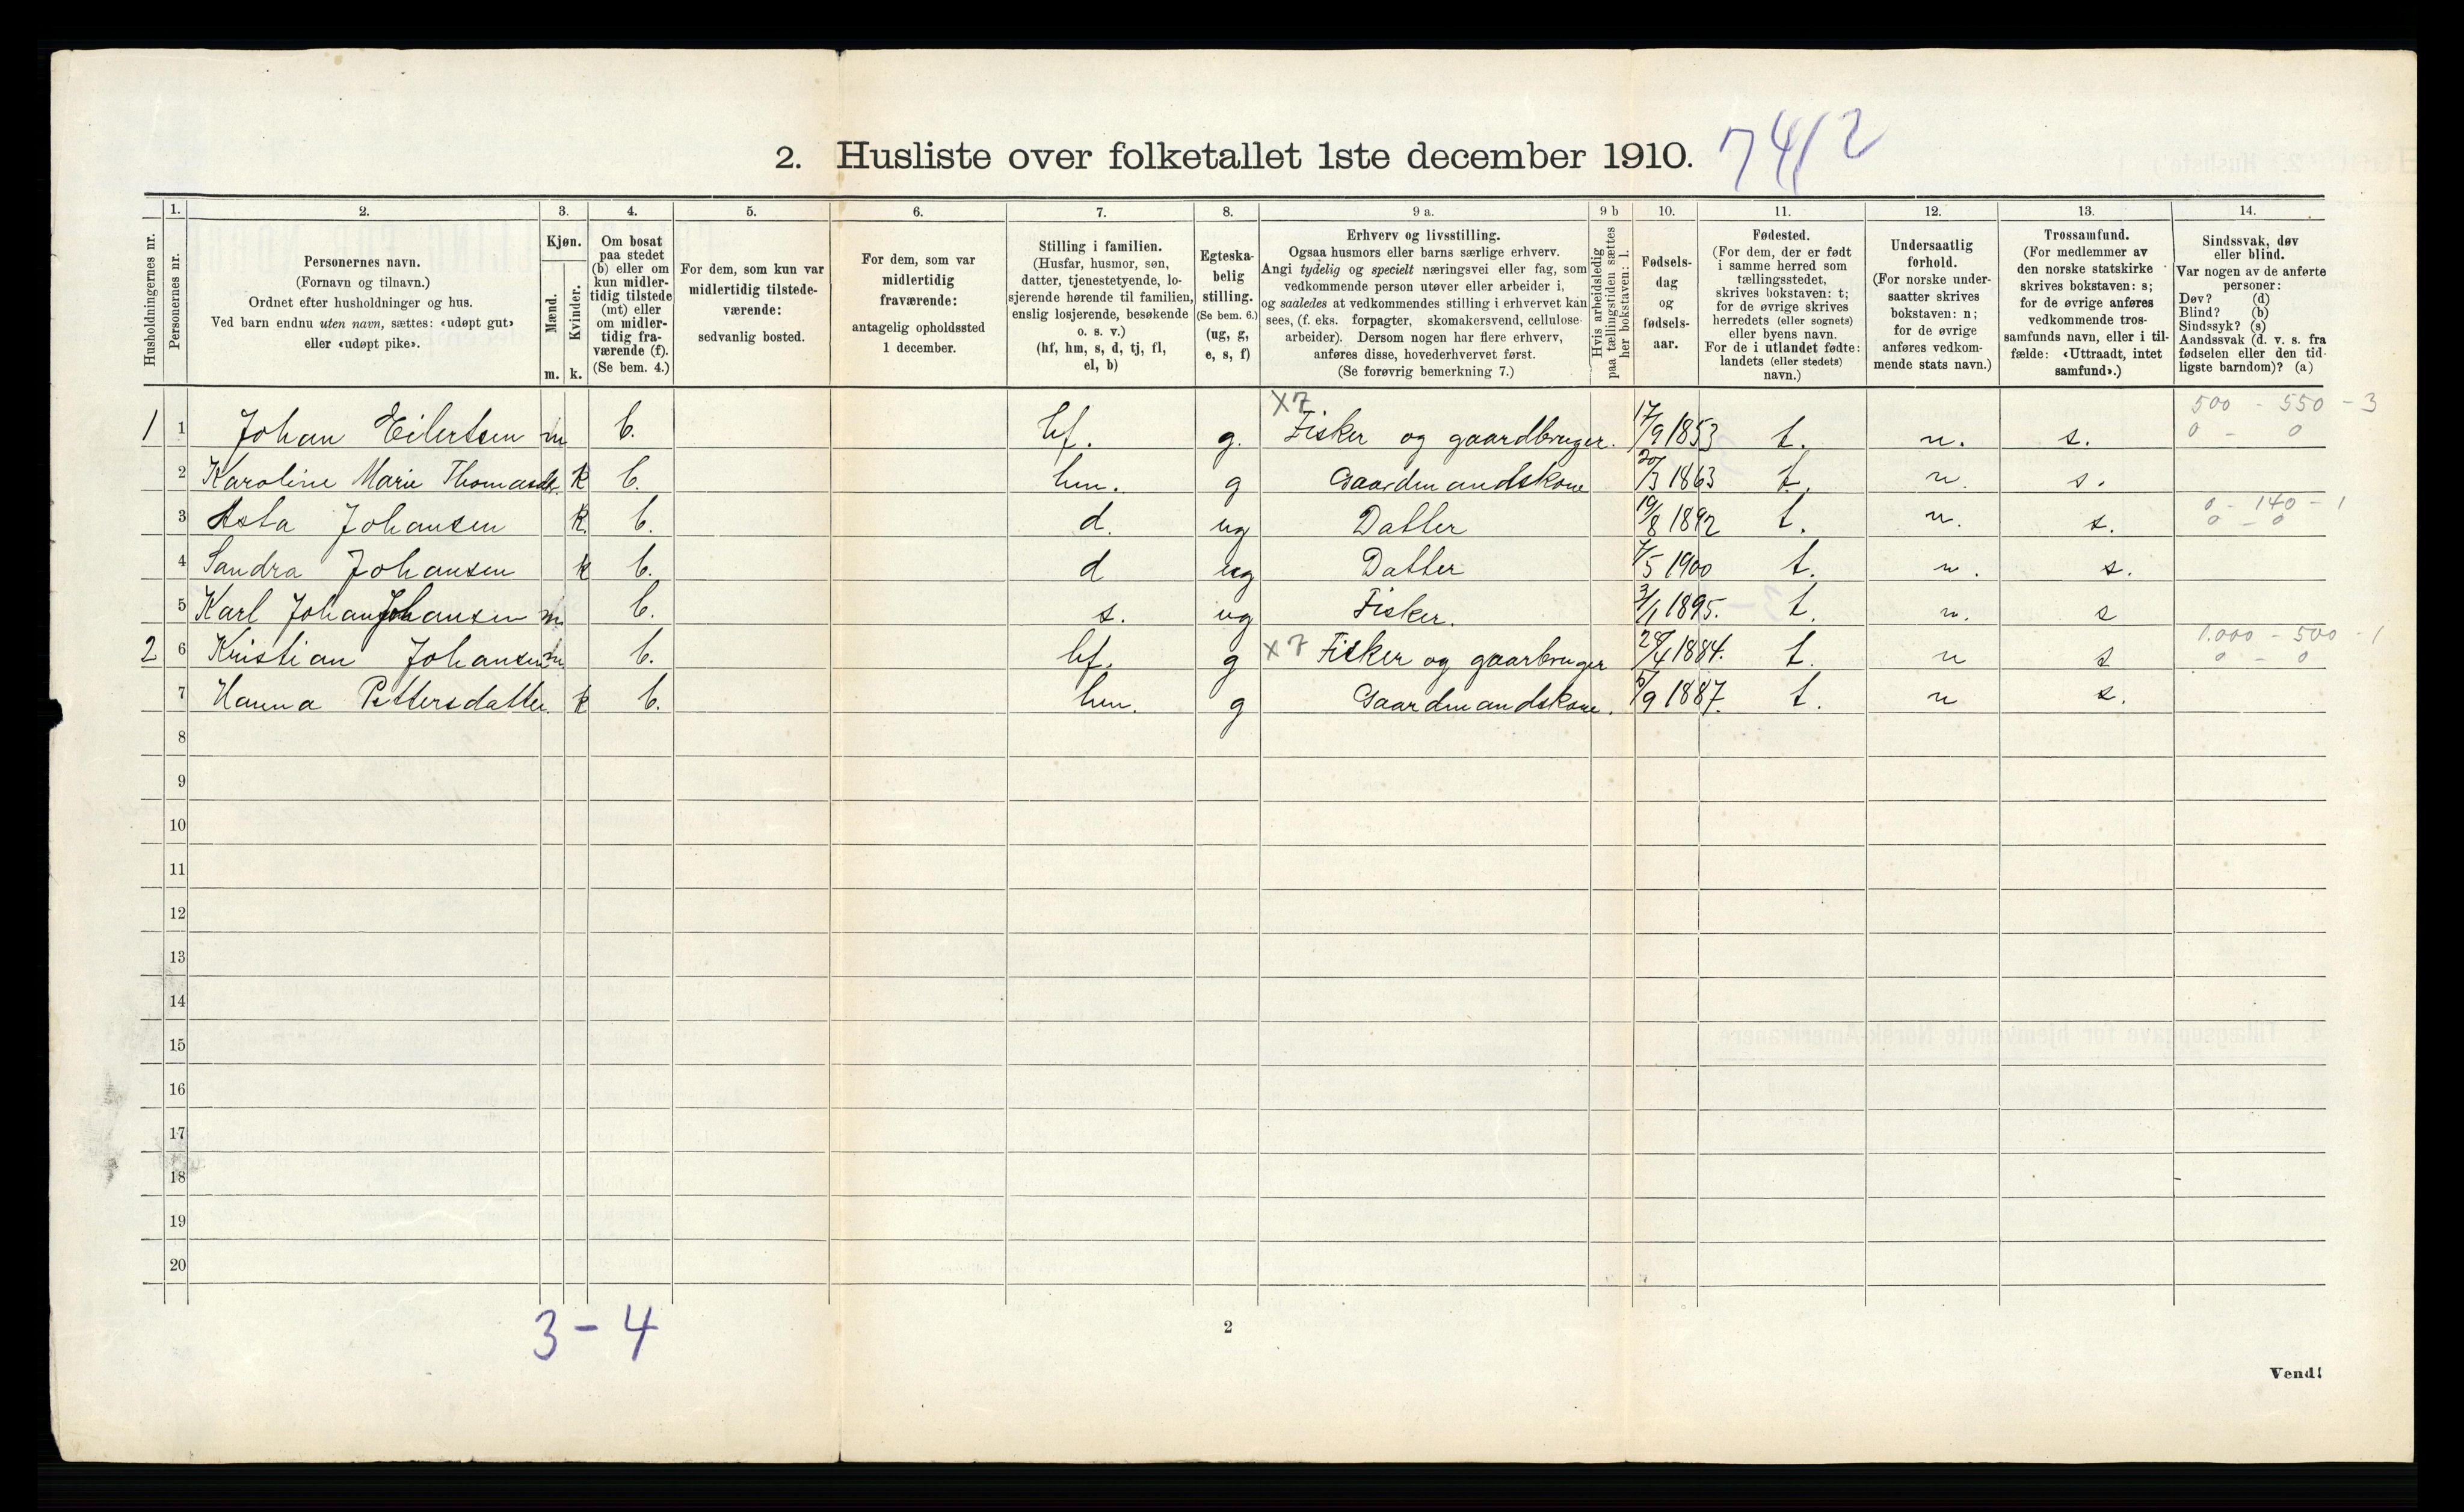 2. Husliste over folketallet 1ste december 1910. 74/2
Husholdningernes nr.
1.
Personernes nr.
2.
Personernes navn.
(Fornavn og tilnavn.)
Ordnet efter husholdninger og hus.
Ved barn endnu uten navn, sættes: «udøpt gut»
eller «udøpt pike».
3.
Kjøn.
Mænd.
Kvinder.
m. k.
4.
Om bosat
paa stedet
(b) eller om
kun midler-
tidig tilstede
(mt) eller
om midler-
tidig fra-
værende (f).
(Se bem. 4.)
5.
For dem, som kun var
midlertidig tilstede-
værende:
sedvanlig bosted.
6.
For dem, som var
midlertidig
fraværende:
antagelig opholdssted
1 december.
7.
Stilling i familien.
(Husfar, husmor, søn,
datter, tjenestetyende, lo-
sjerende hørende til familien,
enslig losjerende, besøkende
o. s. v.)
(hf, hm, s, d, tj, fl,
el, b)
8.
Egteska-
belig
stilling.
(Se bem. 6.)
(ug, g,
e, s, f)
9 a.
Erhverv og livsstilling.
Ogsaa husmors eller barns særlige erhverv.
Angi tydelig og specielt næringsvei eller fag, som
vedkommende person utøver eller arbeider i,
og saaledes at vedkommendes stilling i erhvervet kan
sees, (f. eks. forpagter, skomakersvend, cellulose-
arbeider). Dersom nogen har flere erhverv,
anføres disse, hovederhvervet først.
(Se forøvrig bemerkning 7.)
9 b
Hvis arbeidsledig
paa tællingstiden sættes
her bokstaven: l.
10.
Fødsels-
dag
og
fødsels-
aar.
11.
Fødested.
(For dem, der er født
i samme herred som
tællingsstedet,
skrives bokstaven: t;
for de øvrige skrives
herredets (eller sognets)
eller byens navn.
For de i utlandet fødte:
landets (eller stedets)
navn.)
12.
Undersaatlig
forhold.
(For norske under-
saatter skrives
bokstaven: n;
for de øvrige
anføres vedkom-
mende stats navn.)
13.
Trossamfund.
(For medlemmer av
den norske statskirke
skrives bokstaven: s;
for de øvrige anføres
vedkommende tros-
samfunds navn, eller i til-
fælde: «Uttraadt, intet
samfund».)
14.
Sindssvak, døv
eller blind.
Var nogen av de anførte
personer:
Døv? (d)
Blind? (b)
Sindssyk? (s)
Aandssvak (d. v. s. fra
fødselen eller den tid-
ligste barndom)? (a)
X7 500 - 550 - 3
1 1 Johan Eilertsen m b. hf. g. Fisker og gaardbruger. 17/9 1853 t. n. s. 0 - 0
2 Karoline Marie Thomasdt. k b. hm. g Gaardmandskone 20/3 1863 t. n. s.
3 Asta Johansen k b. d. ug Datter 19/8 1892 t. n. s. 0 - 140 - 1
0 - 0
4 Sandra Johansen k b. d ug Datter 7/5 1900 t. n. s.
5 Karl Johan Johansen m. b. s. ug Fisker. 3/1 1895. t. n. s
2 6 Kristian Johansen m b. hf. g X7 Fisker og gaarbruger 28/4 1884. t. n s 1.000 - 500 - 1
0 - 0
7 Hanna Pettersdatter. k b. hm. g Gaardmandskone. 5/9 1887. t. n s.
8
9
10
11
12
13
14
15
16
17
18
19
20
3 - 4
2
Vend!